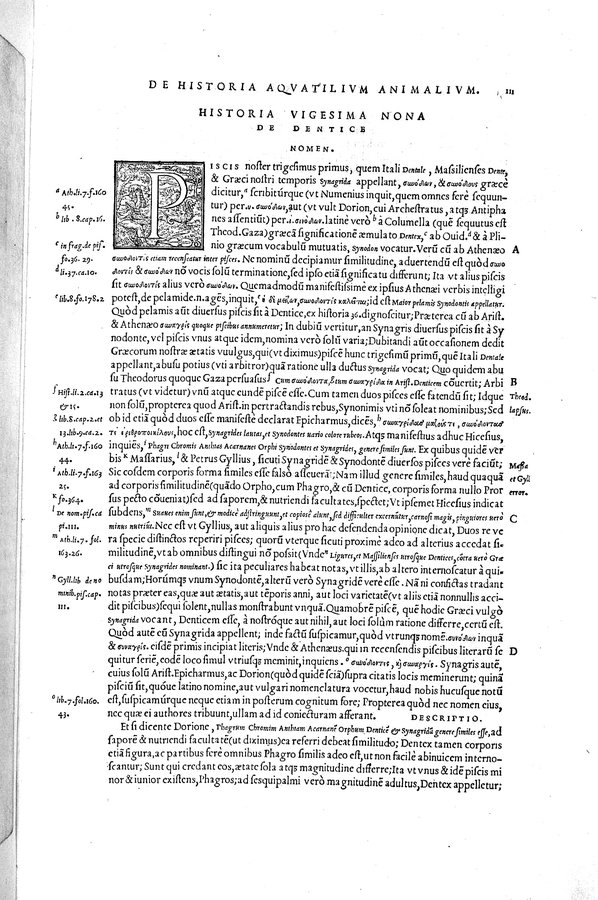 DE HISTORIA AQVATILIVM ANIMALIVM. 111
HISTORIA VIGESIMA NONA
DE DENTICE
NOMEN.
PISCIS noster trigesimus primus, quem Itali Dentale, Massilienses Dente,
& Græci nostri temporis Synagrida appellant, & græcè
dicitur, scribitúrque (vt Numenius inquit, quem omnes ferè sequun-
tur) per aut (vt vult Dorion, cui Archestratus, atqȝ Antipha
nes assentiūt) per latinè verò b à Columella (quē sequutus est
Theod. Gaza) græcâ significationē æmulato Dentex, c ab Ouid. d & à Pli-
nio græcum vocabulū mutuatis, Synodon vocatur. Verū cū ab Athenæo A
etiam recenseatur inter pisces. Ne nominū decipiamur similitudine, aduertendū est quòd
& nō vocis solū terminatione, sed ipso etiā significatu differunt; Ita vt alius piscis
sit alius verò Quemadmodū manifestiss. ex ipsius Athenæi verbis intelligi
potest, de pelamide. n. agēs, inquit, id est Maior pelamis Synodontis appellatur.
Quòd pelamis aūt diuersus piscis sit à Dentice, ex historia 36. dignoscitur; Præterea cū ab Arist.
& Athenæo quoque piscibus annumeretur; In dubiū vertitur, an Synagris diuersus piscis sit à Sy
nodonte, vel piscis vnus atque idem, nomina verò solū varia; Dubitandi aūt occasionem dedit
Græcorum nostræ ætatis vulgus, qui (vt diximus) piscē hunc trigesimū primū, quē Itali Dentale
appellant, abusu potius (vti arbitror) quā ratione vlla ductus Synagrida vocat; Quo quidem abu
su Theodorus quoque Gaza persuasus f Cum in Arist. Denticem cōuertit; Arbi B
tratus (vt videtur) vnū atque eundē piscē esse. Cum tamen duos pisces esse fatendū sit; Idque
non solū, propterea quod Arist. in pertractandis rebus, Synonimis vti nō soleat nominibus; Sed
ob id etiā quòd duos esse manifestè declarat Epicharmus, dicēs,
hoc est, Synagrides lautas, et Synodontes uario colore rubeos. Atqȝ manifestius adhuc Hicesius,
inquiēs Phagri Chromis Anthias Acarnanes Orphi Synodontes et Synagrides, genere similes sunt. Ex quibus quidē ver
bis Massarius, & Petrus Gyllius, sicuti Synagridē & Synodontē diuersos pisces verè faciūt;
Sic eosdem corporis forma similes esse falsò asseuerāt; Nam illud genere similes, haud quaquā
ad corporis similitudinē (quā do Orpho, cum Phagro, & cū Dentice, corporis forma nullo Pror
sus pecto cōueniat) sed ad saporem, & nutriendi facultates, spectet; Vt ipsemet Hicesius indicat
subdens, Suaues enim sunt, & modicè adstringunt, et copiosè alunt, sed difficulter excernūtur, carnosi magis, pinguiores uerò C
minus nutriūt. Nec est vt Gyllius, aut aliquis alius pro hac defendenda opinione dicat, Duos re ve
ra specie distinctos reperiri pisces; quorū vterque sicuti proximè adeo ad alterius accedat si-
militudinē, vt ab omnibus distingui nō possit (Vnde Ligures, et Massilienses utrosque Dentices, cætera uerò Græ
ci utrosque Synagrides nominant.) sic ita peculiares habeat notas, vt illis, ab altero internoscatur à qui-
busdam; Horúmqȝ vnum Synodontē, alterū verò Synagridē verè esse. Nā ni conficta s tradant
notas præter eas, quæ aut ætatis, aut tēporis anni, aut loci varietatē (vt aliis etiā nonnullis acci-
dit piscibus) sequi solent, nullas monstrabunt vnquā. Quamobrē piscē, quē hodie Græci vulgò
Synagrida vocant, Denticem esse, à nostróque aut nihil, aut loci solùm ratione differre, certū est.
Quòd autē cū Synagrida appellent; inde factū suspicamur, quòd vtrunqȝ nomē. inquā
& eisdē primis incipiat literis; Vnde & Athenæus. qui in recensendis piscibus literarū se D
quitur seriē, eodē loco simul vtriusqȝ meminit, inquiens. Synagris autē,
cuius solū Arist. Epicharmus, ac Dorion (quòd quidē sciā) supra citatis locis meminerunt; quinā
pisciū sit, quóue latino nomine, aut vulgari nomenclatura vocetur, haud nobis hucusque notū
est, suspicamúrque neque etiam in posterum cognitum fore; Propterea quòd nec nomen eius,
nec quæ ei authores tribuunt, vllam ad id coniecturam afferant. DESCRIPTIO.
Et si dicente Dorione, Phagrum Chromim Anthiam Acarnanē Orphum Denticē & Synagridā genere similes esse, ad
saporē & nutriendi facultatē (ut diximus) ea referri debeat similitudo; Dentex tamen corporis
etiā figura, ac partibus ferè omnibus Phagro similis adeo est, ut non facilè abinuicem interno-
scantur; Sunt qui credant eos, ætate sola atqȝ magnitudine differre; Ita vt vnus & idē piscis mi
nor & iunior existens, Phagros; ad sesquipalmi verò magnitudinē adultus, Dentex appelletur;
a Ath. li. 7. f. 160
45.
b lib. 8. cap. 16.
c in frag. de pis.
fo. 36. 29.
d li. 37. ca. 10.
e lib. 8. fo. 178. 2
f Hist. li. 2. ca. 13
& 15.
g lib. 8. cap. 2. et
13. lib. 9. ca. 2.
h Ath. li. 7. f. 160
44.
i Ath. li. 7. f. 163
25.
K fo. 364.
l De nom. pis. ca
pi. 111.
m Ath. li. 7. fol.
163. 26.
n Gyll. lib de no
minib. pis. cap.
111.
o lib. 7. fol. 160.
43.
Theod.
lapsus.
Massa
et Gyll
error.